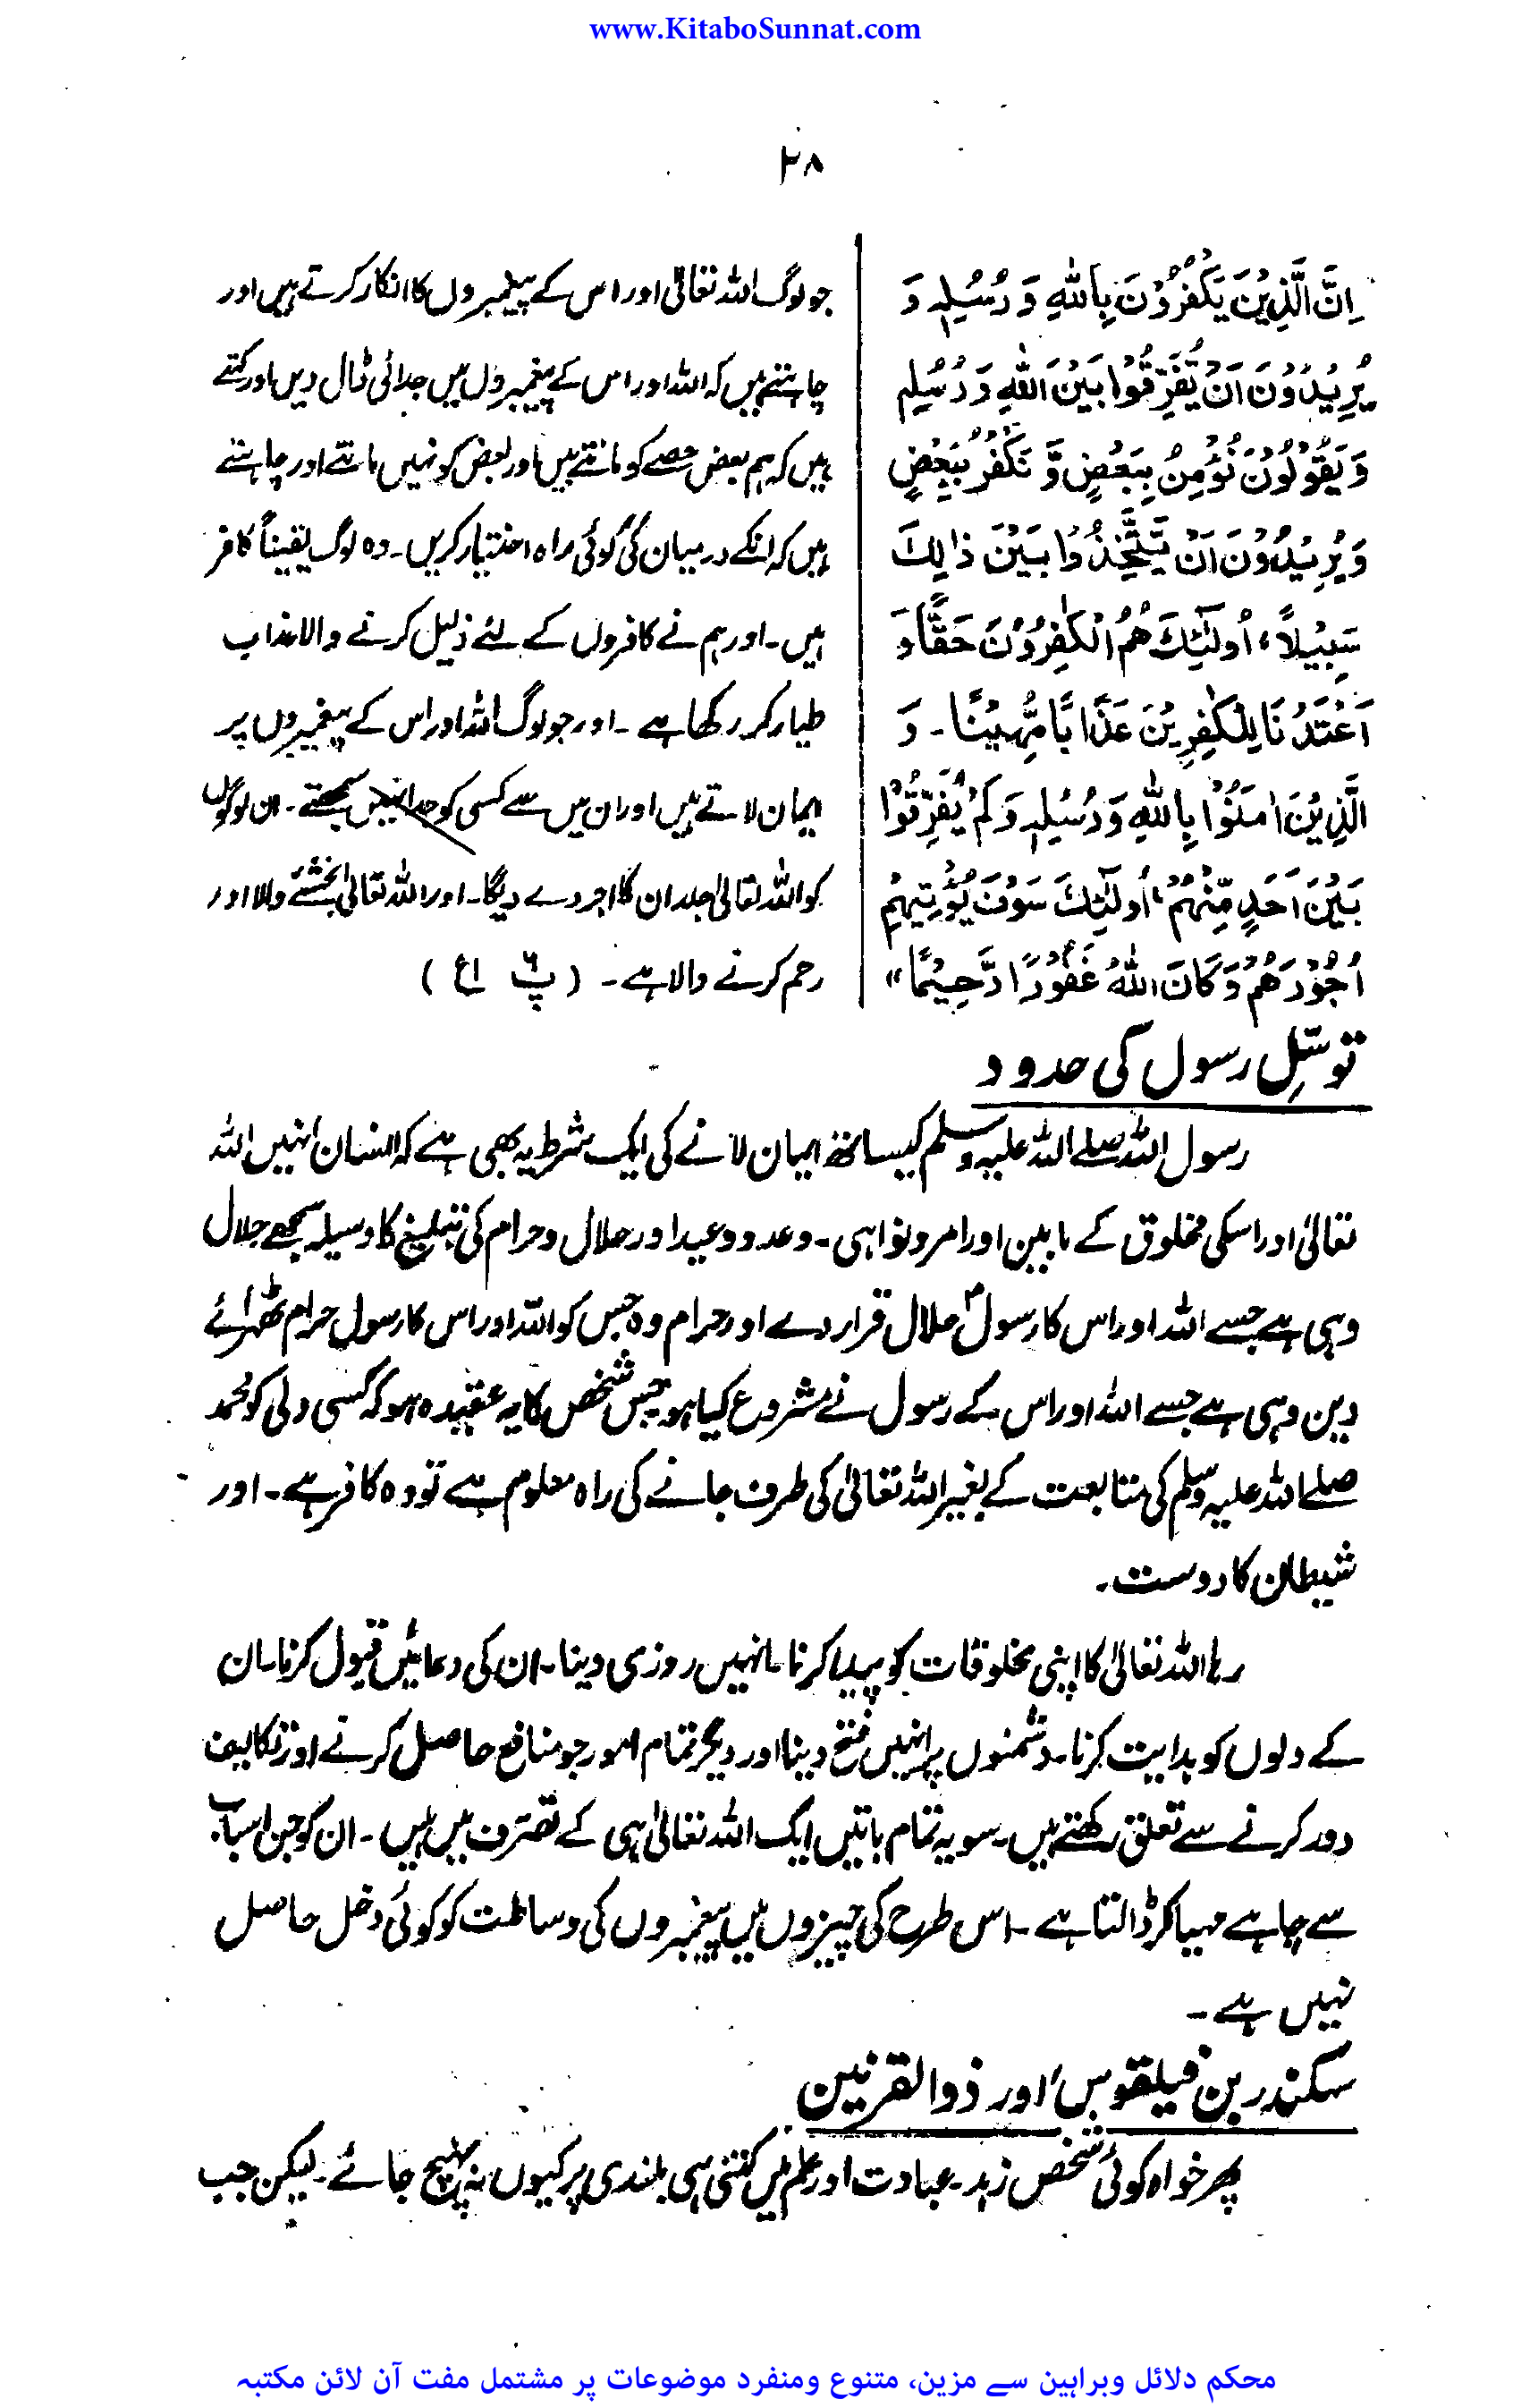 www.KitaboSunnat.com
۲۸
اِنَّ الَّذِيْنَ يَكْفُرُوْنَ بِاللّٰهِ وَ رُسُلِهٖ وَ
يُرِيْدُوْنَ اَنْ يُّفَرِّقُوْا بَيْنَ اللّٰهِ وَ رُسُلِهٖ
وَ يَقُوْلُوْنَ نُؤْمِنُ بِبَعْضٍ وَّ نَكْفُرُ بِبَعْضٍ
وَ يُرِيْدُوْنَ اَنْ يَّتَّخِذُوْا بَيْنَ ذٰلِكَ
سَبِيْلاً، اُولٰٓئِكَ هُمُ الْكٰفِرُوْنَ حَقًّا وَ
اَعْتَدْنَا لِلْكٰفِرِيْنَ عَذَابًا مُّهِيْنًا ۔ وَ
الَّذِيْنَ اٰمَنُوْا بِاللّٰهِ وَ رُسُلِهٖ وَ لَمْ يُفَرِّقُوْا
بَيْنَ اَحَدٍ مِّنْهُمْ اُولٰٓئِكَ سَوْفَ يُؤْتِيْهِمْ
اُجُوْرَهُمْ وَ كَانَ اللّٰهُ غَفُوْرًا رَّحِيْمًا»
جو لوگ اللہ تعالیٰ اور اس کے پیغمبروں کا انکار کرتے ہیں اور
چاہتے ہیں کہ اللہ اور اس کے پیغمبروں میں جدائی ڈال دیں اور کہتے
ہیں کہ ہم بعض حصے کو مانتے ہیں اور بعض کو نہیں مانتے اور چاہتے
ہیں کہ انکے درمیان کی کوئی راہ اختیار کریں۔ وہ لوگ یقیناً کافر
ہیں۔ اور ہم نے کافروں کے لئے ذلیل کرنے والا عذاب
طیار کر رکھا ہے ۔ اور جو لوگ اللہ اور اس کے پیغمبروں پر
ایمان لاتے ہیں اور ان میں سے کسی کو جدا نہیں سمجھتے۔ ان لوگوں
کو اللہ تعالیٰ جلد ان کا اجر دے دیگا۔ اور اللہ تعالیٰ بخشنے والا اور
رحم کرنے والا ہے۔ (پ ۶ ع ۱)
توسّلِ رسول کی حدود
رسول اللہ صلے اللہ علیہ وسلم کیساتھ ایمان لانے کی ایک شرط یہ بھی ہے کہ انسان انہیں اللہ
تعالیٰ اور اسکی مخلوق کے مابین اوامر و نواہی۔ وعد و وعید اور حلال و حرام کی تبلیغ کا وسیلہ سمجھے حلال
وہی ہے جسے اللہ اور اس کا رسولؐ حلال قرار دے اور حرام وہ جس کو اللہ اور اس کا رسول حرام ٹھہرائے
دین وہی ہے جسے اللہ اور اس کے رسول نے مشروع کیا ہو جس شخص کا یہ عقیدہ ہو کہ کسی ولی کو محمد
صلے اللہ علیہ وسلم کی متابعت کے بغیر اللہ تعالیٰ کی طرف جانے کی راہ معلوم ہے تو وہ کافر ہے۔ اور
شیطان کا دوست۔
رہا اللہ تعالیٰ کا اپنی مخلوقات کو پیدا کرنا۔ انہیں روزی دینا۔ ان کی دعائیں قبول کرنا۔ ان
کے دلوں کو ہدایت کرنا۔ دشمنوں پر انہیں فتح دینا اور دیگر تمام امور جو منافع حاصل کرنے اور تکالیف
دور کرنے سے تعلق رکھتے ہیں۔ سو یہ تمام باتیں ایک اللہ تعالیٰ ہی کے تصرف میں ہیں۔ ان کو جن اسباب
سے چاہے مہیا کر ڈالتا ہے۔ اس طرح کی چیزوں میں پیغمبروں کی وساطت کو کوئی دخل حاصل
نہیں ہے۔
سکندر بن فیلقوس اور ذوالقرنین
پھر خواہ کوئی شخص زہد۔ عبادت اور علم میں کتنی ہی بلندی پر کیوں نہ پہنچ جائے۔ لیکن جب
محکم دلائل وبراہین سے مزین، متنوع ومنفرد موضوعات پر مشتمل مفت آن لائن مکتبہ